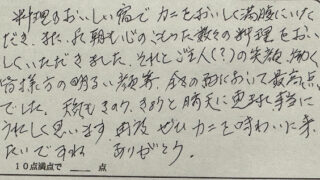 料理のおいしい宿でカニをおいしく満腹にいた
だき、また、翌朝も心のこもった数々の料理をおい
しくいただきました。それとご主人(?)の笑顔、働く
皆様方の明るい顔等、全ての面において最高点
でした。天候もきのう、きょうと勝天に恵まれ本当に
うれしく思います。再度ぜひカニを味わいに来
たいですね ありがとう。
10点満点で 点